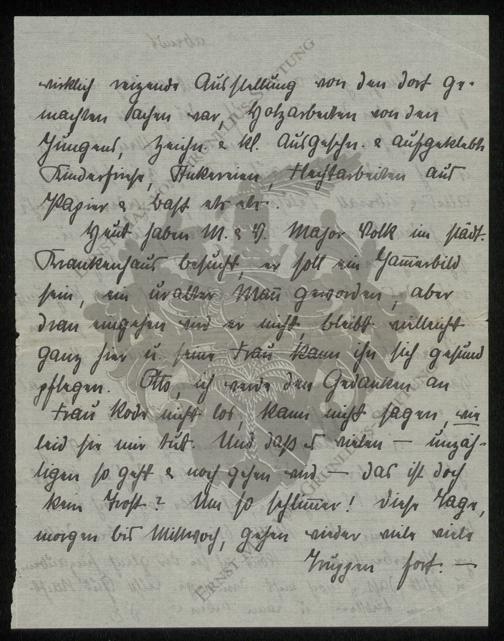 wirklich reizende Ausstellung von den dort ge-
machten Sachen war, Holzarbeiten von den
Jungens, Zeichn. & kl. Ausgeschn. & aufgeklebte
Kinderfriese, Stickereien, Flechtarbeiten aus
Papier & Bast etc etc.
Heut haben M. & V. Major Volk im städt.
Krankenhaus besucht, er soll ein Jam̄erbild
sein, ein uralter Man̄ geworden, aber
dran eingehen wird er nicht bleibt vielleicht
ganz hier u. seine Frau kann ihn sich gesund
pflegen. Otto, ich werde den Gedanken an
Frau Rode nicht los, kann nicht sagen wie
leid sie mir tut. Und daß es vielen — unzäh-
ligen so geht & noch gehen wird — das ist doch
kein Trost? Um so schlim̄er! Diese Tage,
morgen bis Mittwoch, gehen wieder viele viele
Truppen fort. —
ERNST